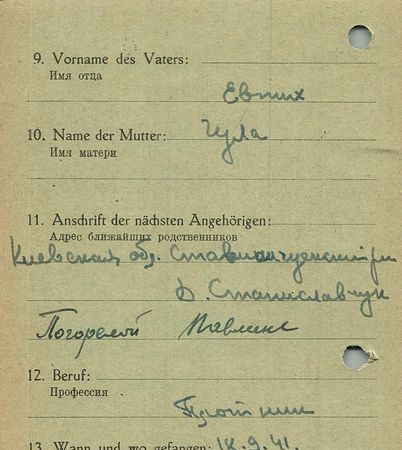 9. Vorname des Vaters:
Имя отца
Евтих
10. Name der Mutter:
Имя матери
11. Anschrift der nächsten Angehörigen:
Адрес ближайших родственников
Киевская обр.
д. Станиславчук
Погорелой Павлине
12. Beruf:
Профессия
Плотник
13. Wann und wo gefangen: 18.9.41.